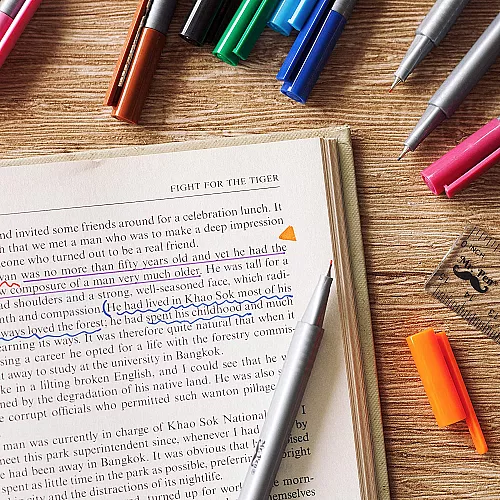 FIGHT FOR THE TIGER
nd invited some friends around for a celebration lunch. It
h that we met a man who was to make a deep impression
eone who turned out to be a real friend.
wan was no more than fifty years old and yet he had the
w composure of a man very much older. He was tall for a
d shoulders and a strong, well-seasoned face, which radi-
nth and compassion. He had lived in Khao Sok most of his
ways loved the forest; he had spent his childhood and much
earning its ways. It was therefore quite natural that when it
sing a career he opted for a life with the forestry commis-
t away to study at the university in Bangkok.
ke in a lilting broken English, and I could see that he w
ned by the degradation of his native land. He was also
e corrupt officials who permitted such wanton pillage
man was currently in charge of Khao Sok National I
meet this park superintendent since, whenever I had ised
e had been away in Bangkok. It was obvious that
spent as little time in the park as possible, preferring bright
ngkok and the distractions of its nightlife.
turned up for work morn-
themselves
Mr.
BY